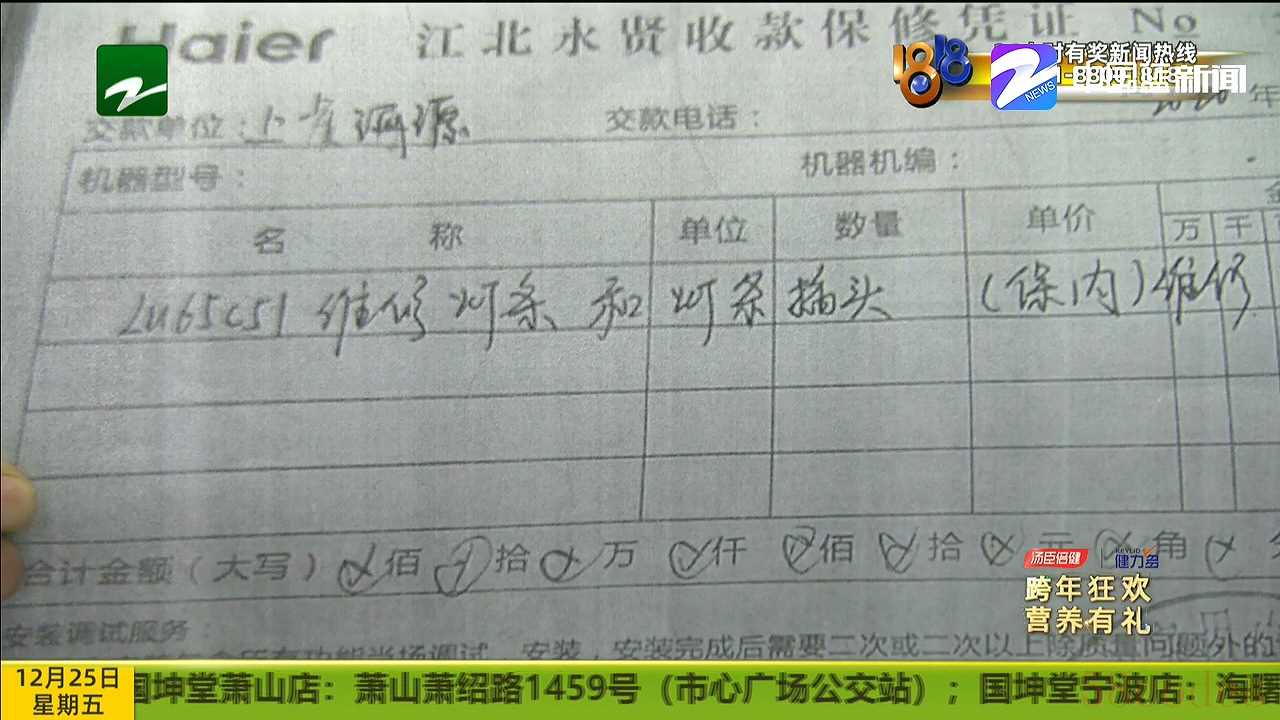 Haier 江北永贤收款保修凭证 No
时有奖新闻热线
1818
NEWS
交款单位：上 交款电话： 2020年
机器型号： 机器机编：
名 称 单位 数量 单价 万 千
LU65C51 维修 灯条 和 灯条 插头 (保内) 维修
合计金额（大写） 佰 拾 万 仟 佰 拾 元 角
汤臣倍健 健力多
跨年狂欢
营养有礼
安装调试服务：
安装，安装完成后需要二次或二次以上除质量问题外的
12月25日 国坤堂萧山店：萧山萧绍路1459号（市心广场公交站）；国坤堂宁波店：海曙
星期五